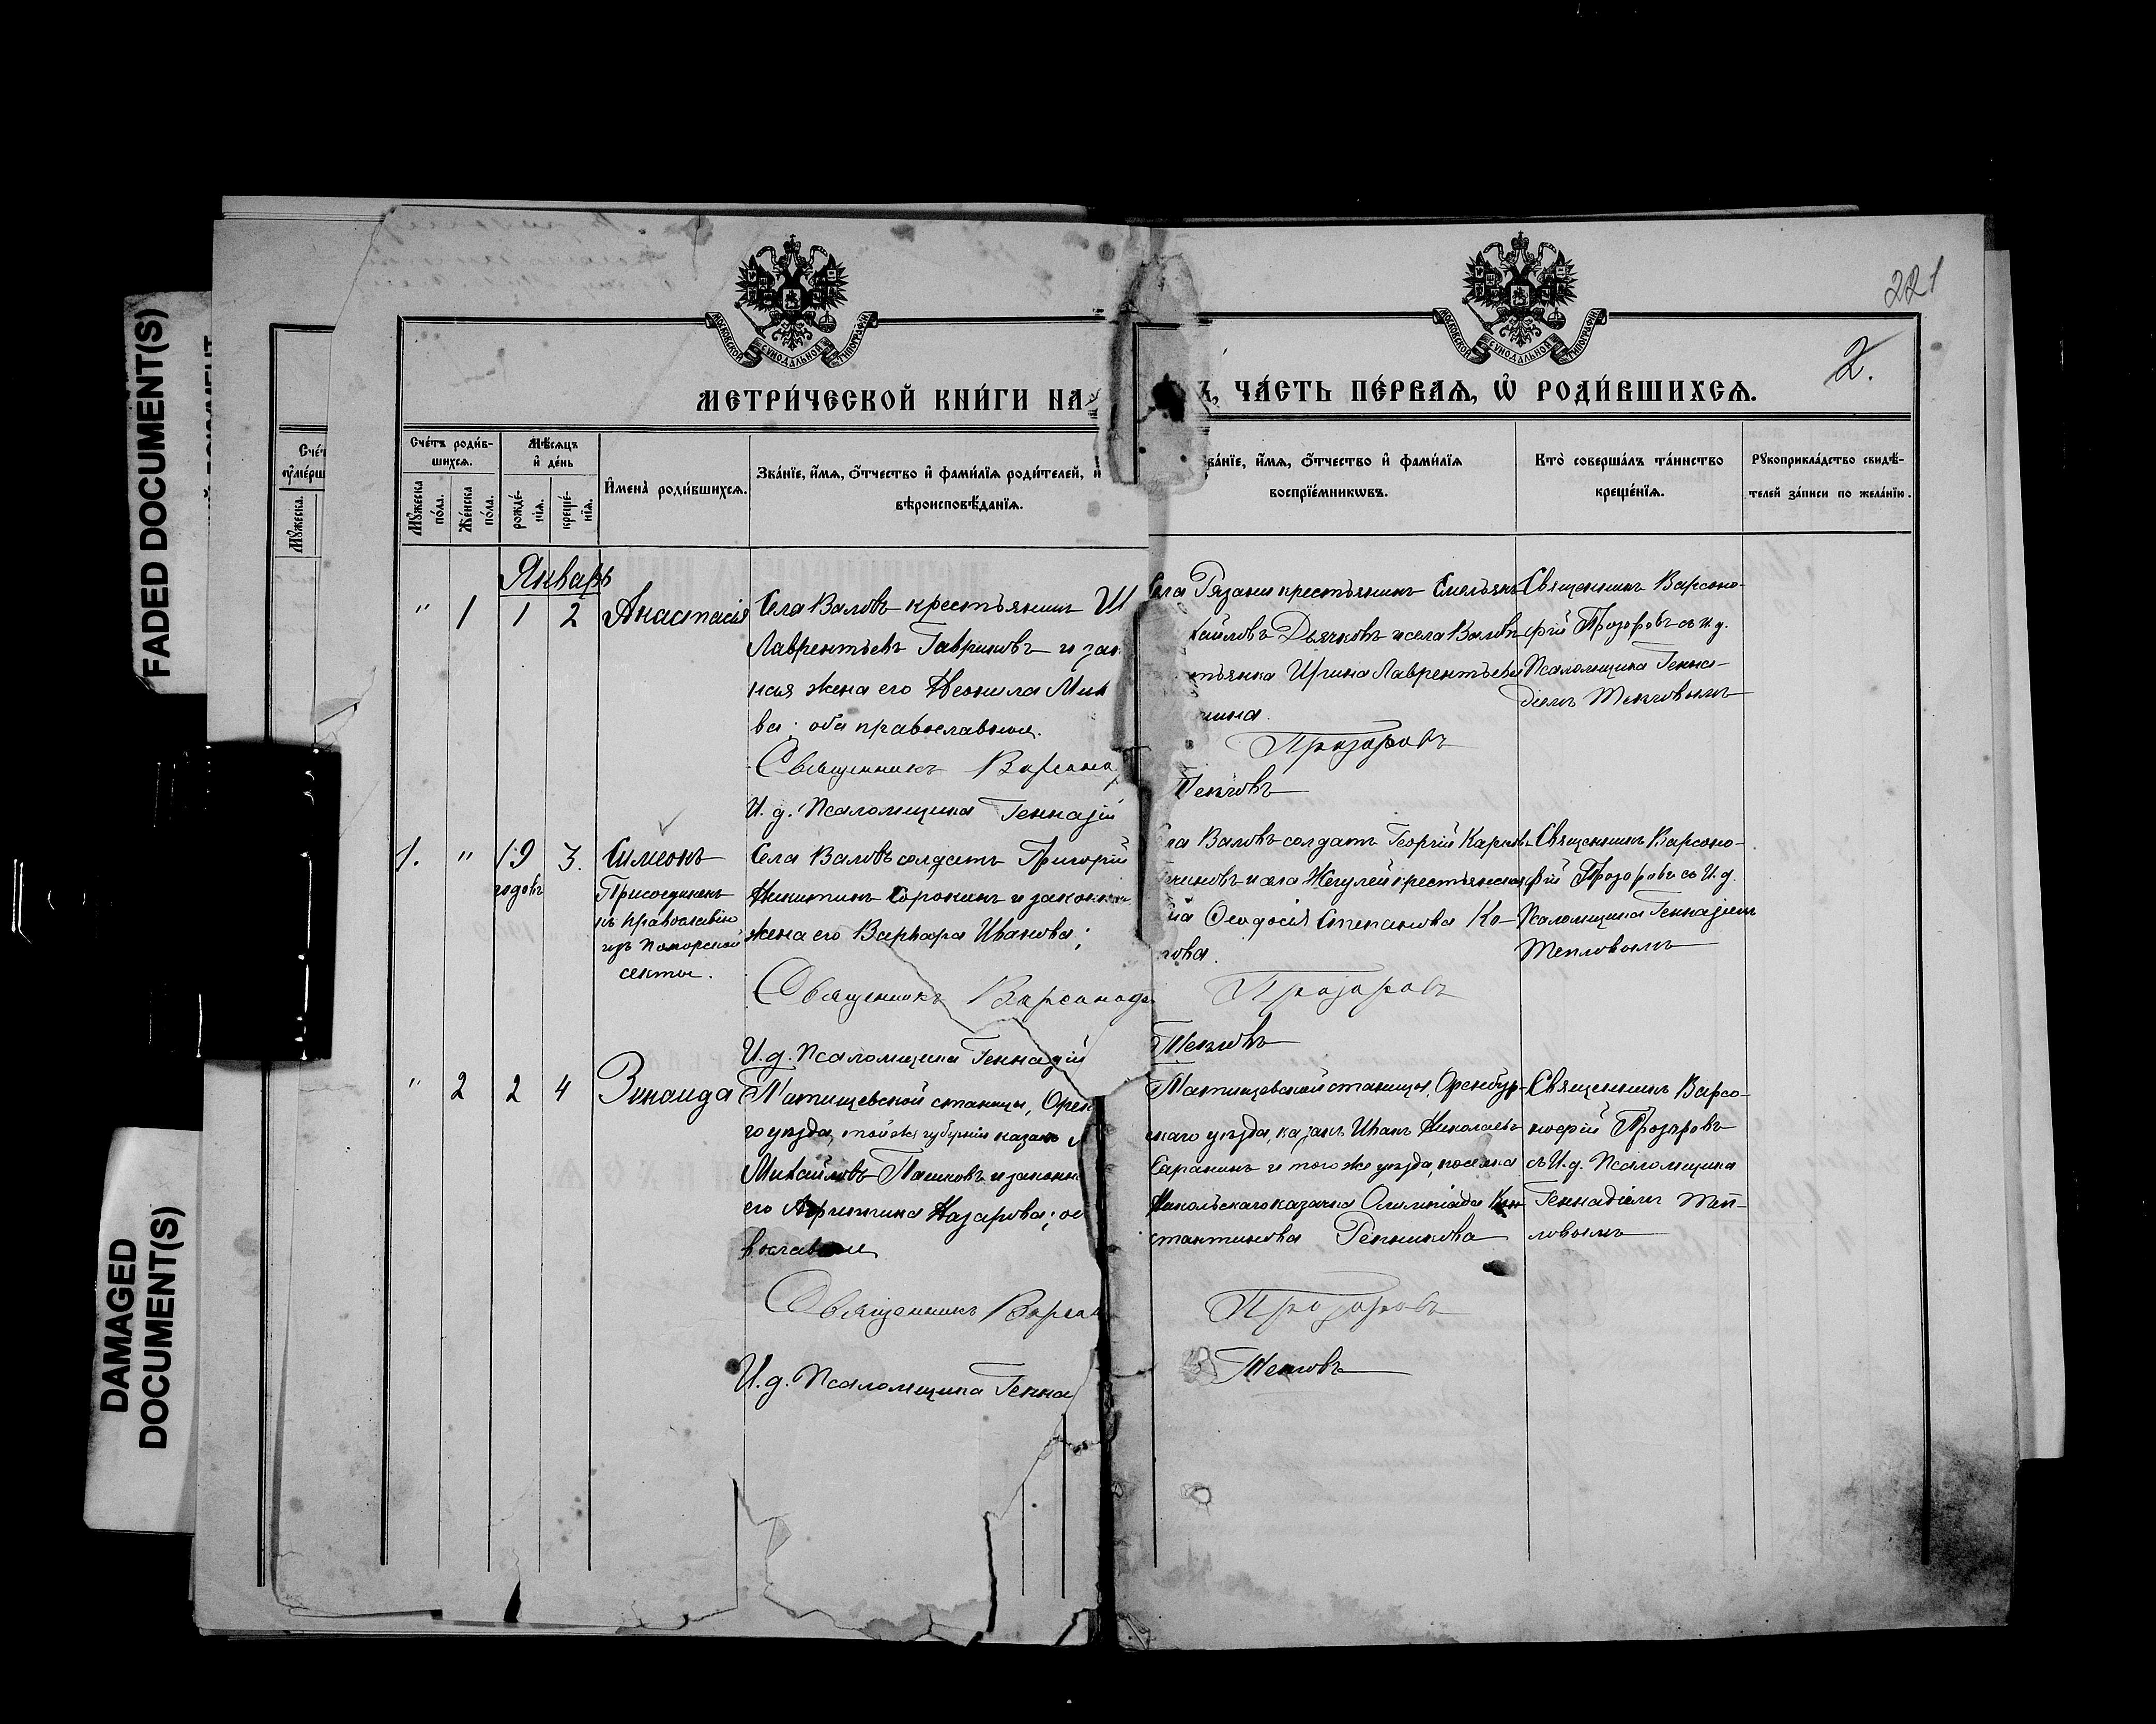 FADED DOCUMENT(S)
DAMAGED
DOCUMENT(S)
221
2.
МОСКОВСКОЙ СѴНОДАЛЬНОЙ ТИПОГРАФІИ
МОСКОВСКОЙ СѴНОДАЛЬНОЙ ТИПОГРАФІИ
МЕТРИ́ЧЕСКОЙ КНИ́ГИ НА
ЧА́СТЬ ПЕ́РВАѦ, Ѡ҆ РОДИ́ВШИХСѦ.
Сче́тъ роди́в-
шихсѧ.
Мѣ́сѧцъ
и҆ де́нь
Мꙋ́жеска
по́ла.
Же́нска
по́ла.
рожде́-
нїѧ.
креще́-
нїѧ.
И҆мена̀ роди́вшихсѧ.
Зва́нїе, и҆́мѧ, ѻ҆́тчество и҆ фами́лїѧ роди́телей, и҆
вѣроисповѣ́данїѧ.
ва́нїе, и҆́мѧ, ѻ҆́тчество и҆ фами́лїѧ
воспрїе́мникѡвъ.
Кто̀ соверша́лъ та́инство
креще́нїѧ.
Рꙋкоприкла́дство свидѣ́-
телей за́писи по жела́нїю.
Январь
" 1 1 2 Анастасія
Села Валовъ крестьянинъ
Лаврентьевъ Гавриковъ и зак
ная жена его Неонила Мих
ва; оба православные.
Священникъ Варсоно
И. д. Псаломщика Геннадій
Рязани крестьянинъ Емельянъ
айловъ Дьячковъ и села Валовъ
тьянка Ирина Лаврентьева
Прозоровъ
Тепловъ
Священникъ Варсоно-
фій Прозоровъ съ и. д.
Псаломщика Генна-
діемъ Тепловымъ
1. " 19 3.
годовъ
Симеонъ
Присоединенъ
къ православію
изъ Поморской
секты.
Села Валовъ солдатъ Григорій
Никитинъ Сорокинъ и законная
жена его Варвара Иванова;
Священникъ Варсоноф
И. д. Псаломщика Геннадій
Валовъ солдатъ Георгій Карпов
и села Жегулей крестьянская
Ѳеодосія Степанова Ко-
Прозоровъ
Тепловъ
Священникъ Варсоно-
фій Прозоровъ съ И. д.
Псаломщика Геннадіемъ
Тепловымъ
" 2 2 4 Зинаида
Татищевской станицы, Орен
го уѣзда, той же губерніи казакъ
Михайловъ Пашковъ и законн
его Агриппина Назарова; об
вославные
Священникъ Варсон
И. д. Псаломщика Генна
Татищевской станицы, Оренбур-
скаго уѣзда, казакъ Иванъ Николаевъ
Саранинъ и того же уѣзда, поселка
Никольскаго казачка Олимпіада Кон-
стантинова Репникова
Прозоровъ
Тепловъ
Священникъ Варсо-
нофій Прозоровъ
съ И. д. Псаломщика
Геннадіемъ Теп-
ловымъ